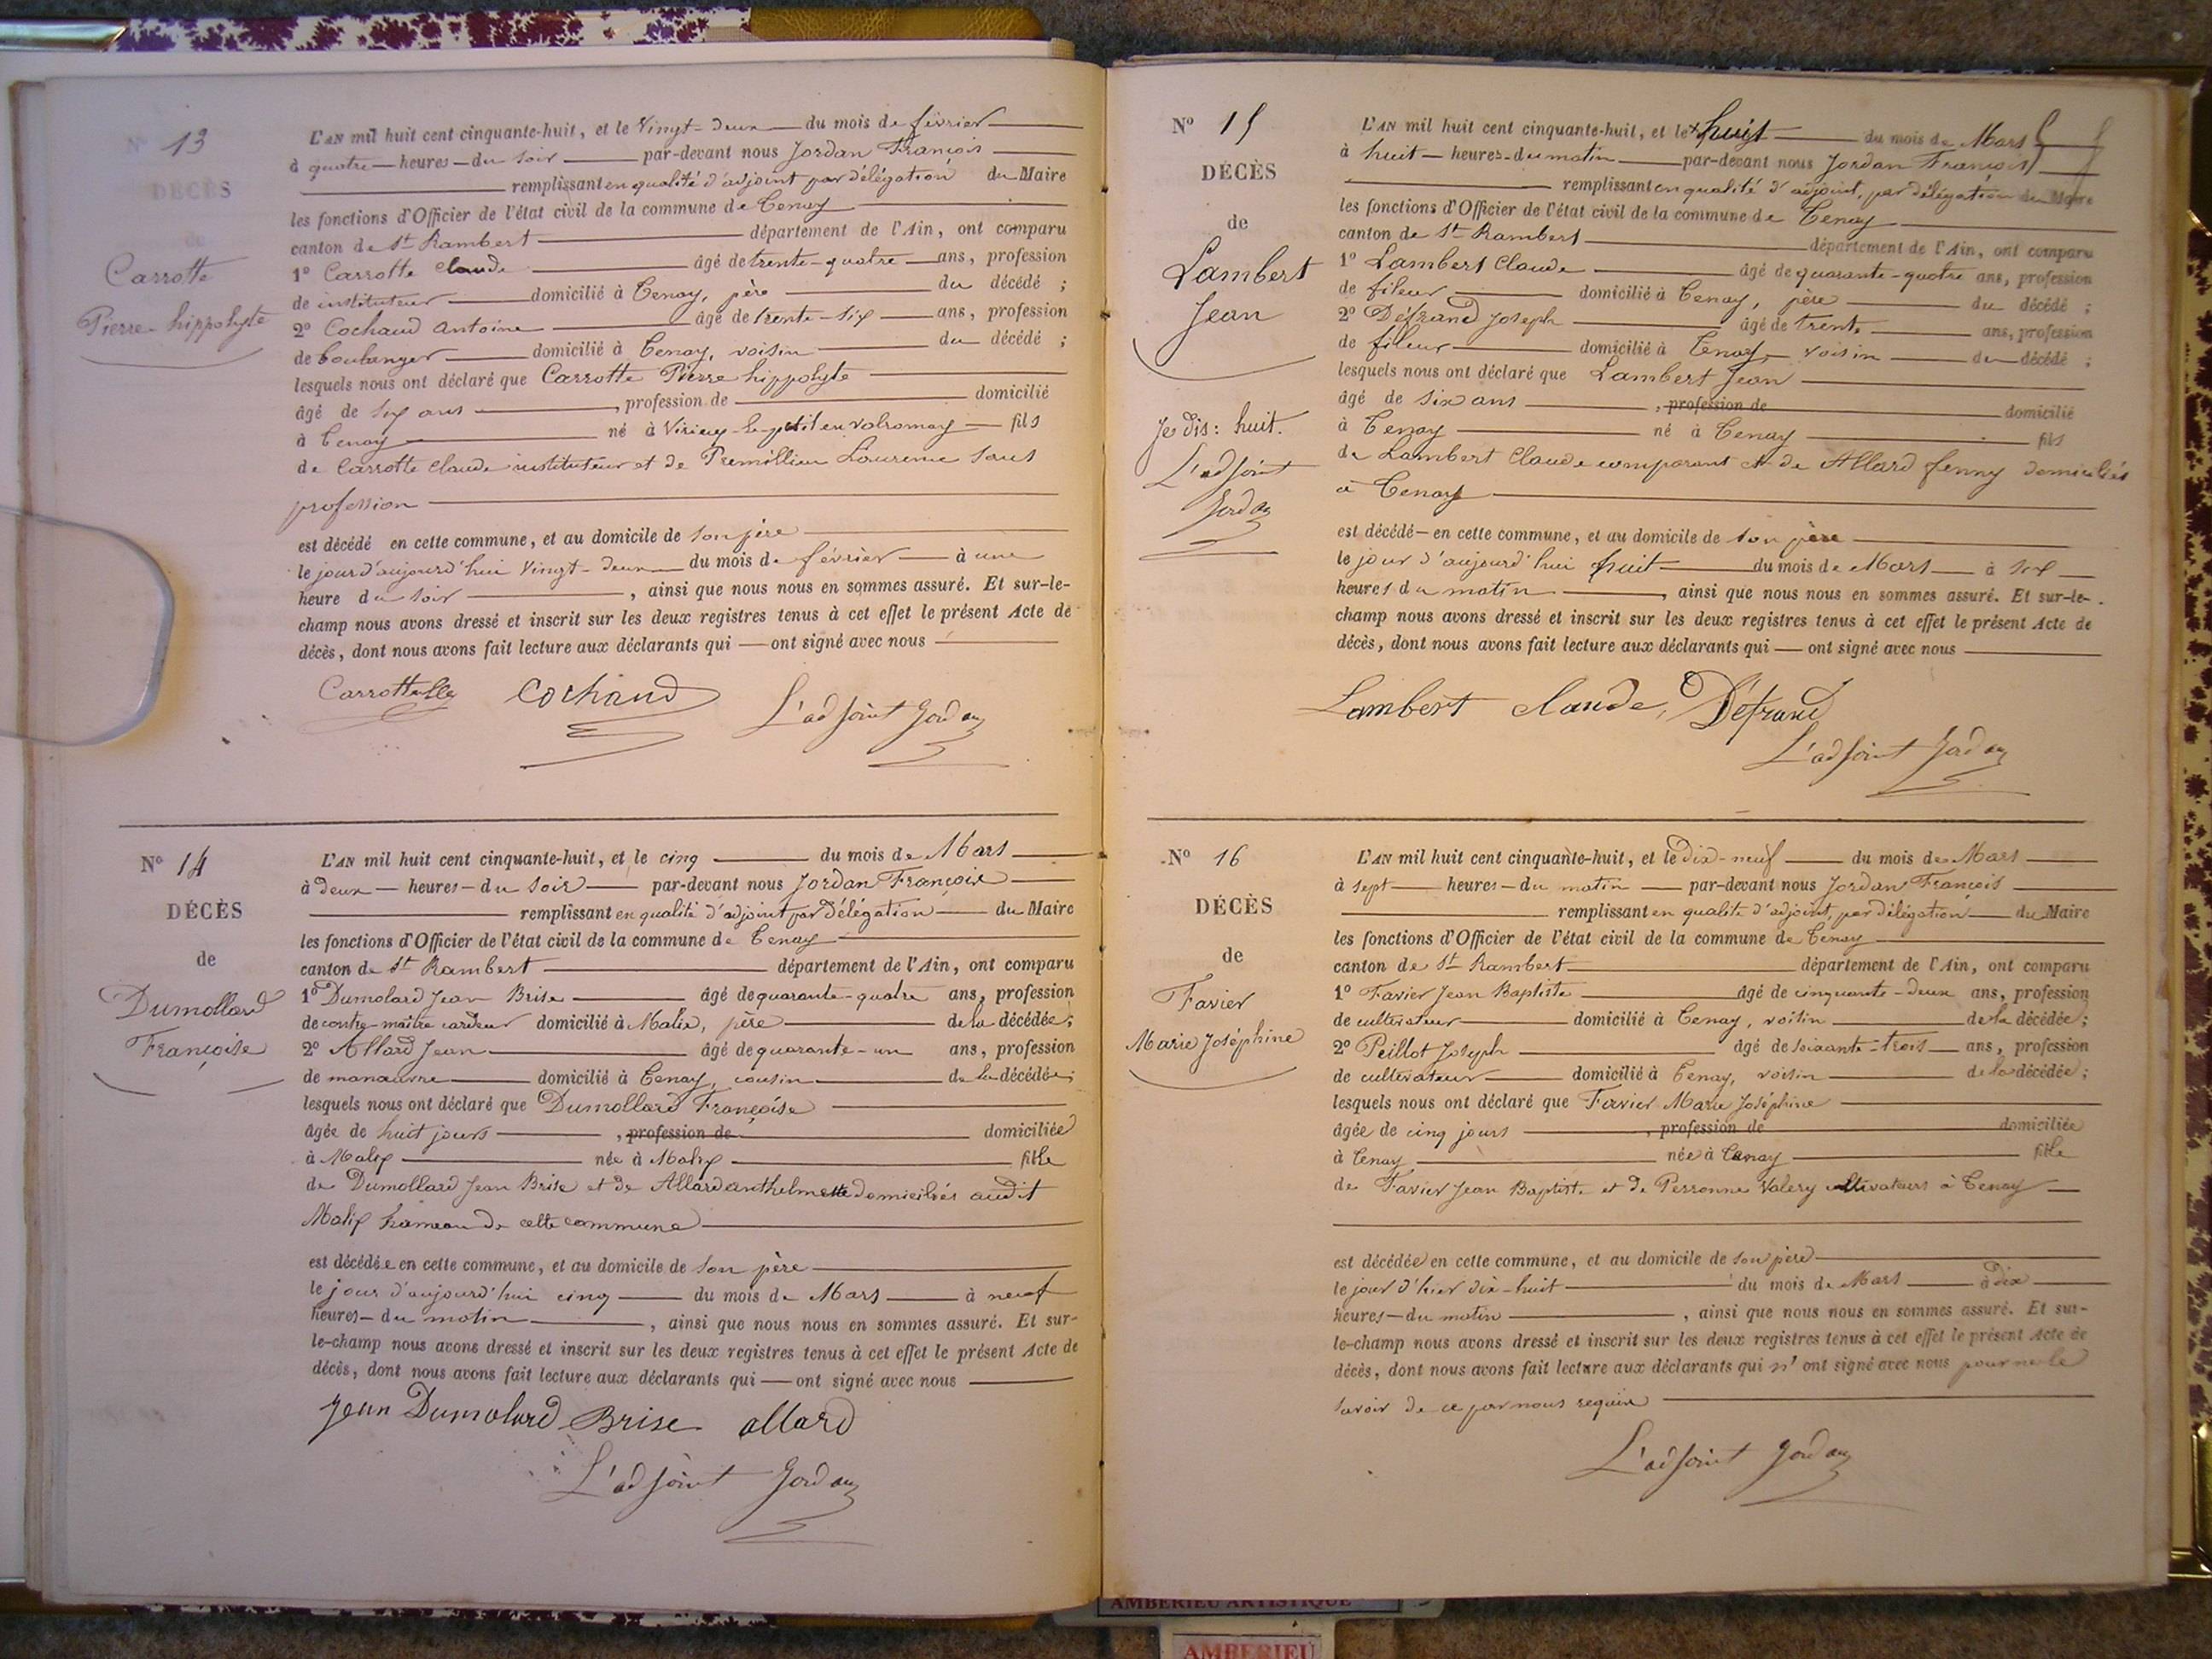 N° 13
DÉCÈS
de
Carrotte
Pierre-hippolyte
L'AN mil huit cent cinquante-huit, et le Vingt-deux du mois de février
à quatre heures du soir par-devant nous Jordan François
remplissant en qualité d'adjoint par délégation du Maire
les fonctions d'Officier de l'état civil de la commune de Tenay
canton de St Rambert département de l'Ain, ont comparu
1° Carrotte Claude âgé de trente-quatre ans, profession
de instituteur domicilié à Tenay, père du décédé ;
2° Cochaud Antoine âgé de trente-six ans, profession
de boulanger domicilié à Tenay, voisin du décédé ;
lesquels nous ont déclaré que Carrotte Pierre hippolyte
âgé de six ans, profession de domicilié
à Tenay né à Virieu-le-petit en Valromay fils
de Carrotte Claude instituteur et de Premillieu Laurence sans
profession
est décédé en cette commune, et au domicile de son père
le jour d'aujourd'hui Vingt-deux du mois de février à une
heure du soir, ainsi que nous nous en sommes assuré. Et sur-le-
champ nous avons dressé et inscrit sur les deux registres tenus à cet effet le présent Acte de
décès, dont nous avons fait lecture aux déclarants qui ont signé avec nous
Carrotte Cochaud L'adjoint Jordan
N° 14
DÉCÈS
de
Dumollard
Françoise
L'AN mil huit cent cinquante-huit, et le cinq du mois de Mars
à deux heures du soir par-devant nous Jordan François
remplissant en qualité d'adjoint par délégation du Maire
les fonctions d'Officier de l'état civil de la commune de Tenay
canton de St Rambert département de l'Ain, ont comparu
1° Dumolard Jean Brise âgé de quarante-quatre ans, profession
de contre-maître cardeur domicilié à Malix, père de la décédée ;
2° Allard Jean âgé de quarante-un ans, profession
de manœuvre domicilié à Tenay, cousin de la décédée ;
lesquels nous ont déclaré que Dumollard Françoise
âgée de huit jours, profession de domiciliée
à Malix née à Malix fille
de Dumollard Jean Brise et de Allard anthelmette domiciliés audit
Malix hameau de cette commune
est décédée en cette commune, et au domicile de son père
le jour d'aujourd'hui cinq du mois de Mars à neuf
heures du matin, ainsi que nous nous en sommes assuré. Et sur-
le-champ nous avons dressé et inscrit sur les deux registres tenus à cet effet le présent Acte de
décès, dont nous avons fait lecture aux déclarants qui ont signé avec nous
Jean Dumolard Brise allard
L'adjoint Jordan
N° 15
DÉCÈS
de
Lambert
Jean
Je dis : huit.
L'adjoint
Jordan
L'AN mil huit cent cinquante-huit, et le huit du mois de Mars
à huit heures du matin par-devant nous Jordan François
remplissant en qualité d'adjoint, par délégation du Maire
les fonctions d'Officier de l'état civil de la commune de Tenay
canton de St Rambert département de l'Ain, ont comparu
1° Lambert Claude âgé de quarante-quatre ans, profession
de fileur domicilié à Tenay, père du décédé ;
2° Défrand Joseph âgé de trente ans, profession
de fileur domicilié à Tenay, voisin du décédé ;
lesquels nous ont déclaré que Lambert Jean
âgé de six ans, profession de domicilié
à Tenay né à Tenay fils
de Lambert Claude comparant et de Allard fenny domiciliés
à Tenay
est décédé en cette commune, et au domicile de son père
le jour d'aujourd'hui huit du mois de Mars à six
heures du matin, ainsi que nous nous en sommes assuré. Et sur-le-
champ nous avons dressé et inscrit sur les deux registres tenus à cet effet le présent Acte de
décès, dont nous avons fait lecture aux déclarants qui ont signé avec nous
Lambert claude, Défrand
L'adjoint Jordan
N° 16
DÉCÈS
de
Favier
Marie Joséphine
L'AN mil huit cent cinquante-huit, et le Dix-neuf du mois de Mars
à sept heures du matin par-devant nous Jordan François
remplissant en qualité d'adjoint, par délégation du Maire
les fonctions d'Officier de l'état civil de la commune de Tenay
canton de St Rambert département de l'Ain, ont comparu
1° Favier Jean Baptiste âgé de cinquante-deux ans, profession
de cultivateur domicilié à Tenay, voisin de la décédée ;
2° Peillot Joseph âgé de soixante-trois ans, profession
de cultivateur domicilié à Tenay, voisin de la décédée ;
lesquels nous ont déclaré que Favier Marie Joséphine
âgée de cinq jours, profession de domiciliée
à Tenay née à Tenay fille
de Favier Jean Baptiste et de Perronne Valery cultivateurs à Tenay
est décédée en cette commune, et au domicile de son père
le jour d'hier dix-huit du mois de Mars à dix
heures du matin, ainsi que nous nous en sommes assuré. Et sur-
le-champ nous avons dressé et inscrit sur les deux registres tenus à cet effet le présent Acte de
décès, dont nous avons fait lecture aux déclarants qui n'ont signé avec nous pour ne le
savoir de ce par nous requis
L'adjoint Jordan
AMBERIEU ARTISTIQUE
AMBERIEU